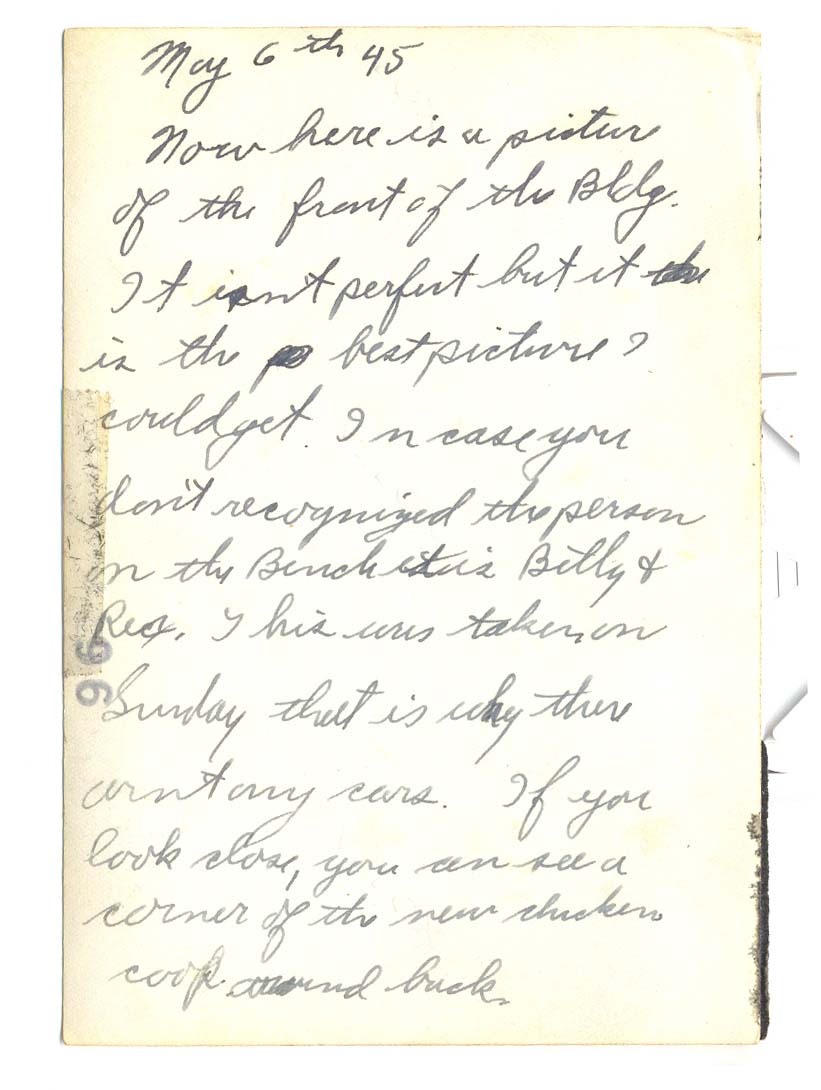 May 6th 45
Now here is a picture
of the front of the Bldg.
It isn't perfect but it
is the best picture I
could get. In case you
don't recognized the person
on the Bench it is Billy &
Rex. This was taken on
Sunday that is why there
arnt any cars. If you
look close, you can see a
corner of the new chicken
coop around back.
96